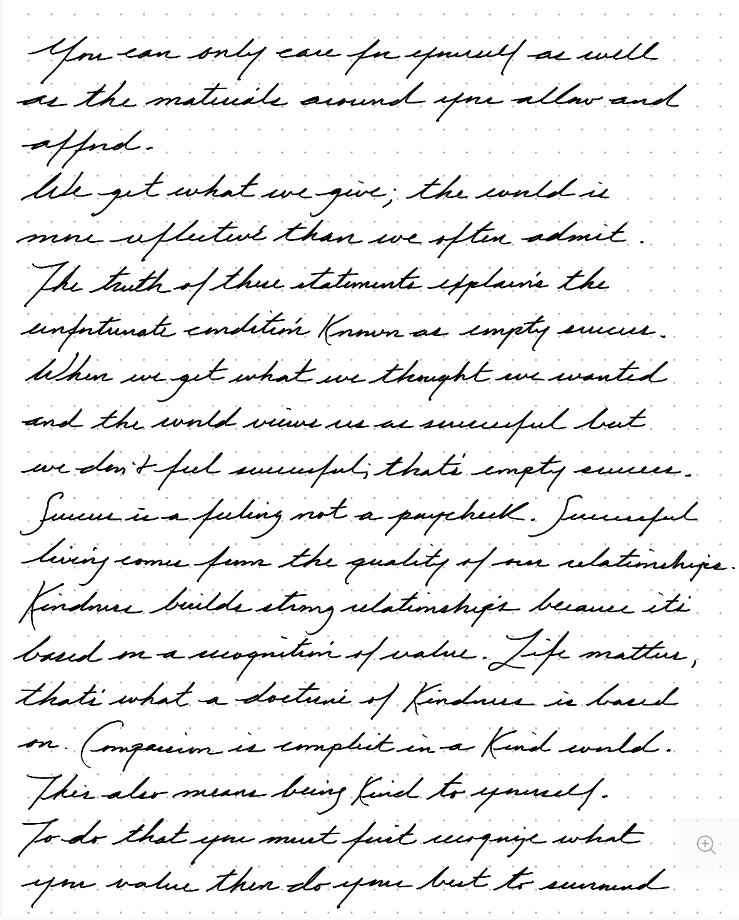 You can only care for yourself as well
as the materials around you allow and
afford.
We get what we give; the world is
more reflective than we often admit.
The truth of these statements explains the
unfortunate condition known as empty success.
When we get what we thought we wanted
and the world views us as successful but
we don't feel successful; that's empty success.
Success is a feeling not a paycheck. Successful
living comes from the quality of our relationships.
Kindness builds strong relationships because it's
based on a recognition of value. Life matters,
that's what a doctrine of kindness is based
on. Compassion is complicit in a kind world.
This also means being kind to yourself.
To do that you must first recognize what
you value then do your best to surround